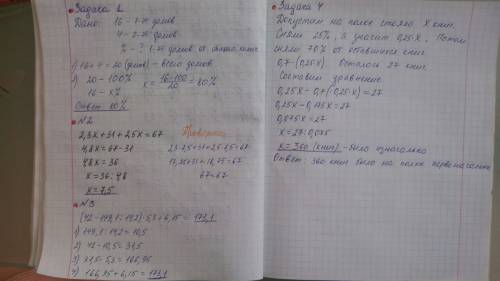 Задача 1
Дано: 16 - 1-эт домов
4 - 2-эт домов
% - ? 1-эт домов от общего колич
1) 16 + 4 = 20 (домов) - всего домов
2) 20 - 100%
16 - x%
x = 16·100/20 = 80%
Ответ 80%
№2
2,3x+31+2,5x=67
4,8x=67-31
48x=36
x=36:48
x=7,5
Проверка
2,3·7,5+31+2,5·7,5=67
17,25+31+18,75=67
67=67
№3
(42-149,1:14,2)·5,3+6,15=173,1
1) 149,1:14,2=10,5
2) 42-10,5=31,5
3) 31,5·5,3=166,95
4) 166,95+6,15=173,1
Задача 4
Допустим на полке стояло X книг.
Сняли 25%, а значит 0,25X. Потом
сняли 70% от оставшихся книг
0,7·(0,25X) Осталось 27 книг.
Составим уравнение
0,25X-0,7·(0,25X)=27
0,25X-0,175X=27
0,075X=27
X=27:0,075
X=360 (книг) - было изначально
Ответ: 360 книг было на полке первоначально